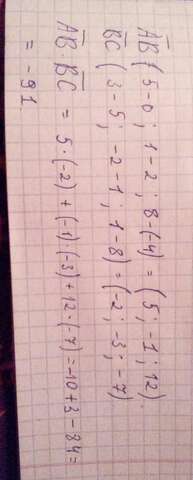 A̅B̅ (5-0; 1-2; 8-(-4) = (5; -1; 12)
B̅C̅ (3-5; -2-1; 1-8) = (-2; -3; -7)
A̅B̅ B̅C̅ = 5·(-2) + (-1)·(-3) + 12·(-7) = -10+3-84=
= -91